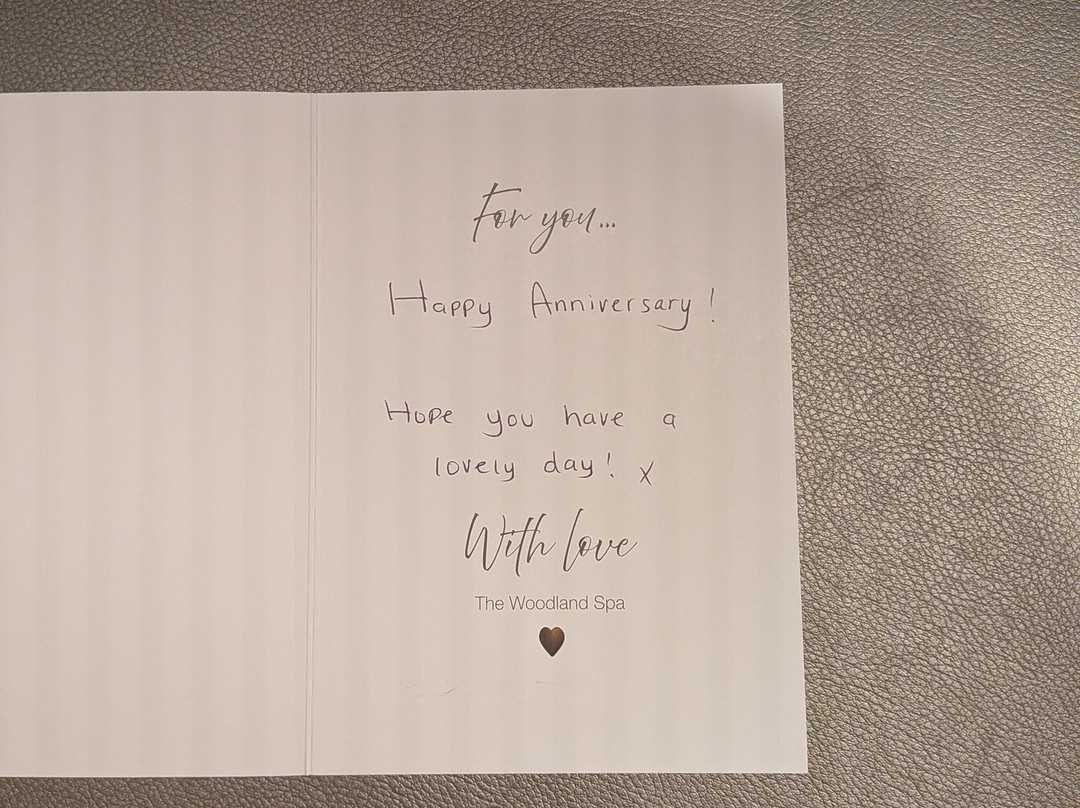 For you...
Happy Anniversary!
Hope you have a
lovely day! x
With love
The Woodland Spa